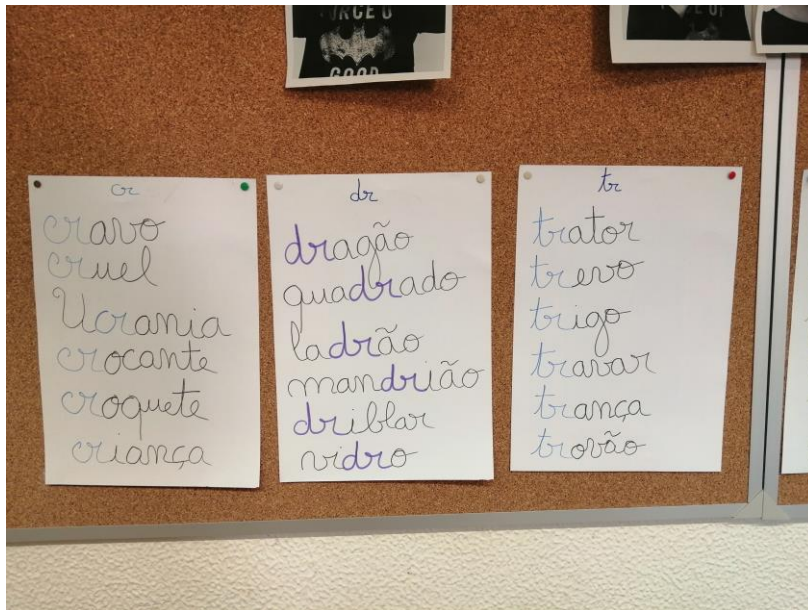 FORCE O
GOOD
cr
cravo
cruel
Ucrania
crocante
croquete
criança
dr
dragão
quadrado
ladrão
mandrião
driblar
vidro
tr
trator
trevo
trigo
travar
trança
trovão